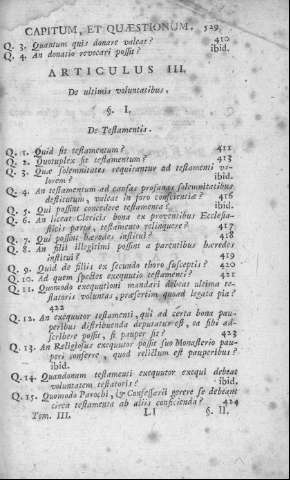 CAPITUM, ET QUÆSTIONUM. 529
Q. 3. Quantum quis donare valeat? 410
Q. 4. An donatio revocari possit? ibid.
ARTICULUS III.
De ultimis voluntatibus.
§. I.
De Testamentis.
Q. 1. Quid sit testamentum? 411
Q. 2. Quotuplex sit testamentum? 413
Q. 3. Quæ solemnitates requirantur ad testamenti va-
lorem? ibid.
Q. 4. An testamentum ad causas profanas solemnitatibus
destitutum, valeat in foro conscientiæ? 416
Q. 5. Qui possint condere testamenta? ibid.
Q. 6. An liceat Clericis bona ex proventibus Ecclesia-
sticis parta, testamento relinquere? 417
Q. 7. Qui possint hæredes institui? 418
Q. 8. An filii illegitimi possint a parentibus hæredes
institui? 419
Q. 9. Quid de filiis ex secundo thoro susceptis? 420
Q. 10. Ad quem spectet exequutio testamenti? 421
Q. 11. Quomodo exequutioni mandari debeat ultima te-
statoris voluntas, præsertim quoad legata pia?
422
Q. 12. An exequutor testamenti, qui ad certa bona pau-
peribus distribuenda deputatus est, ea sibi ad-
scribere possit, si pauper sit? 423
Q. 13. An Religiosus exequutor possit suo Monasterio pau-
peri conferre, quod relictum est pauperibus?
ibid.
Q. 14. Quandonam testamenti exequutor exequi debeat
voluntatem testatoris? ibid.
Q. 15. Quomodo Parochi, & Confessarii gerere se debeant
circa testamenta ab aliis conficienda? 424
Tom. III. Ll §. II.